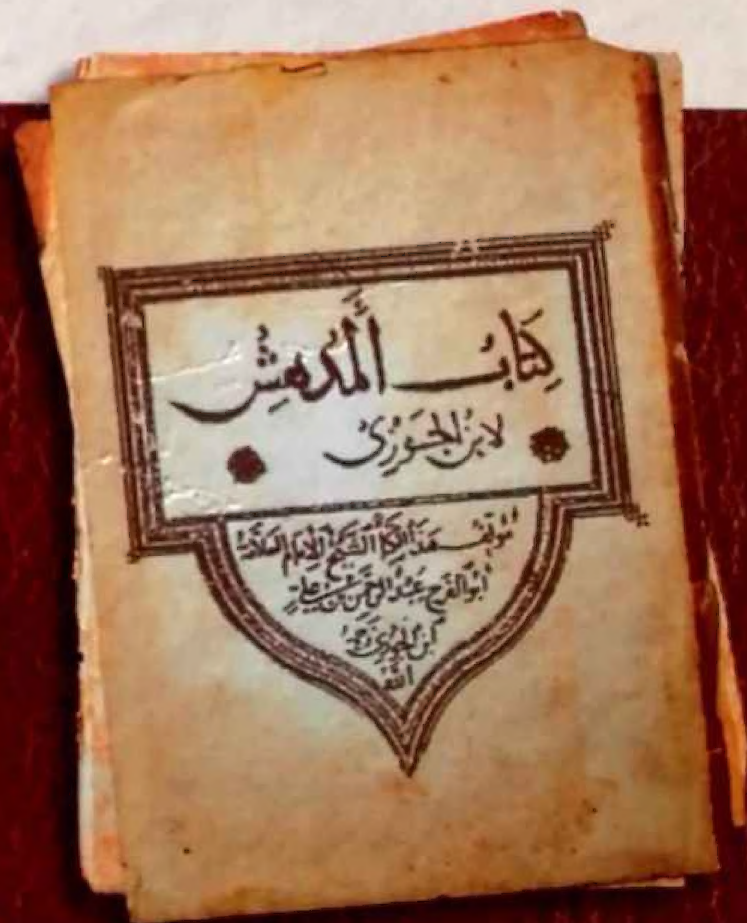 كِتَابُ أَلمُدْهِشِ
لابْنِ الجَوْزِى
مُؤلّف هَذَا الكتاب الشَّيْخُ الإمَام العَلاَّمَة
أبُو الفَرَج عَبْدُ الرَّحْمَن بْن عَلِي
ابْنُ الجَوْزِي رَحمَهُ
الله